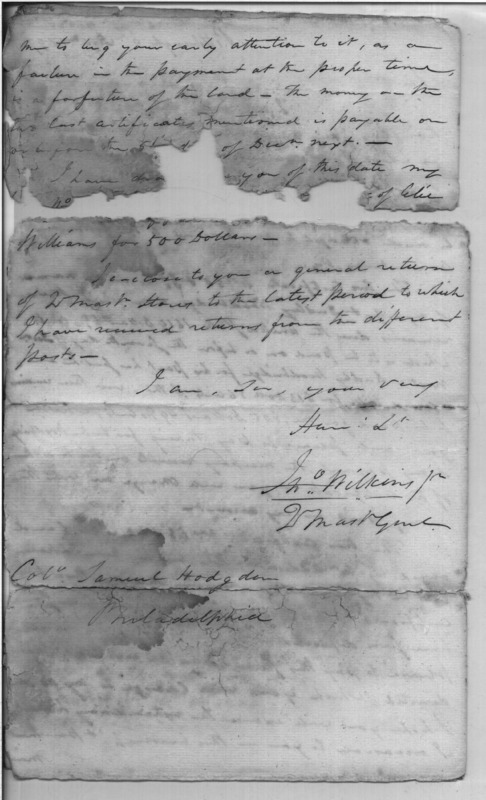 me to beg your early attention to it, as a
failure in the payment at the proper time,
is a forfeiture of the land — the money on the
two last certificates mentioned is payable on
or upon the 5th of Decr. next. —
I have you of this date my
No of Elie
Williams for 500 Dollars —
I enclose to you a general return
of Qr Mastr. Stores to the latest period to which
I have received returns from the different
posts —
I am, Sir, your very
Hum: St
Jno. Wilkins Jr
Qr Mastr Genl.
Colo. Samuel Hodgdon
Philadelphia